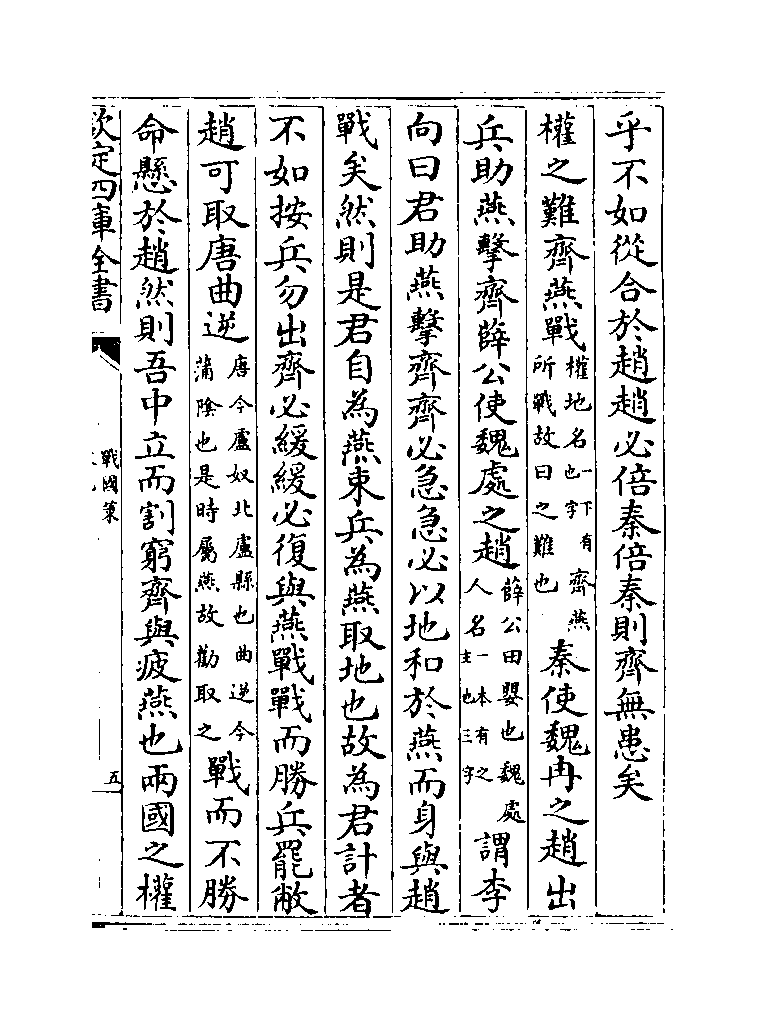 乎不如從合於趙趙必倍秦倍秦則齊無患矣
權之難齊燕戰權地名也一下有齊燕字所戰故曰之難也秦使魏冉之趙出
兵助燕擊齊薛公使魏處之趙薛公田嬰也魏處人名一本有之主也三字謂李
向曰君助燕擊齊齊必急急必以地和於燕而身與趙
戰矣然則是君自為燕束兵為燕取地也故為君計者
不如按兵勿出齊必緩緩必復與燕戰戰而勝兵罷敝
趙可取唐曲逆唐今盧奴北盧縣也曲逆今蒲陰也是時屬燕故勸取之戰而不勝
命懸於趙然則吾中立而割窮齊與疲燕也兩國之權
欽定四庫全書
戰國策
五